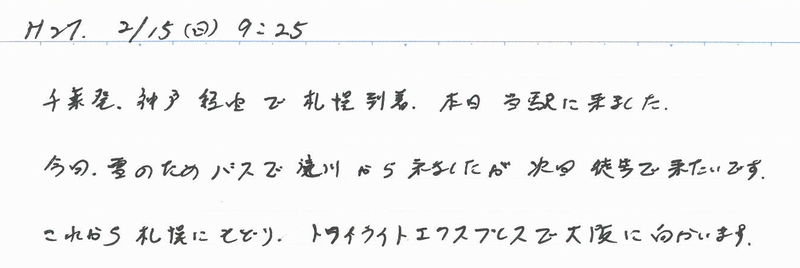 H27. 2/15(日) 9:25
千葉発、神戸経由で札幌到着、本日当駅に来ました。
今回、雪のためバスで滝川から来ましたが次回徒歩で来たいです。
これから札幌にもどり、トワイライトエクスプレスで大阪に向かいます。